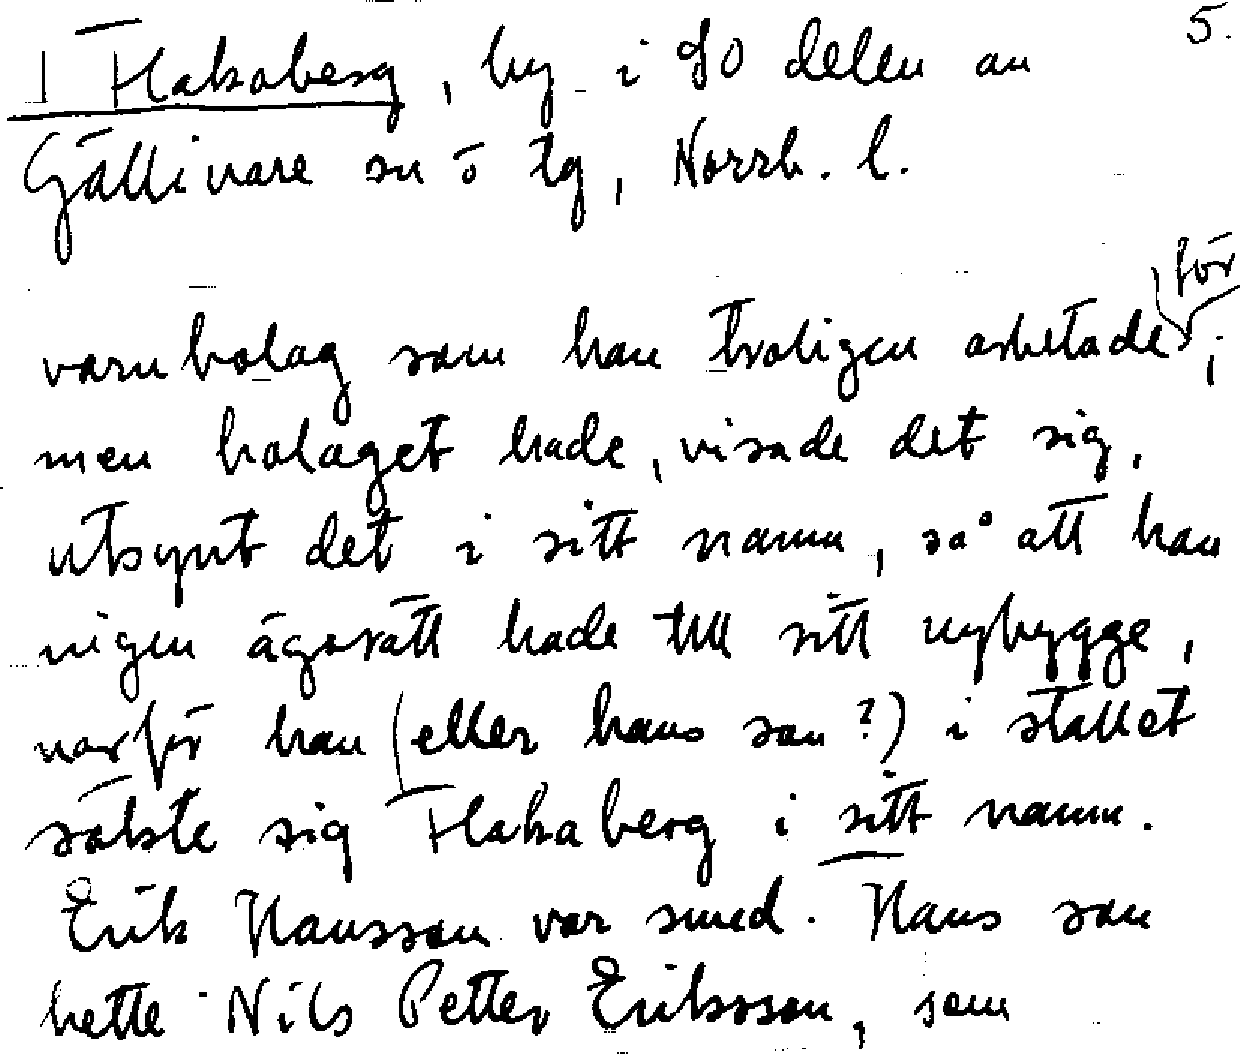 5.
1 Flakaberg, by i SO delen av
Gällivare sn o tg, Norrb. l.
för
varubolag som han troligen arbetade;
men bolaget hade, visade det sig,
utsynt det i sitt namn, så att han
ingen äganrätt hade till sitt nybygge,
varför han (eller hans son?) i stället
sökte sig Flakaberg i sitt namn.
Erik Hansson var smed. Hans son
hette Nils Petter Eriksson, som